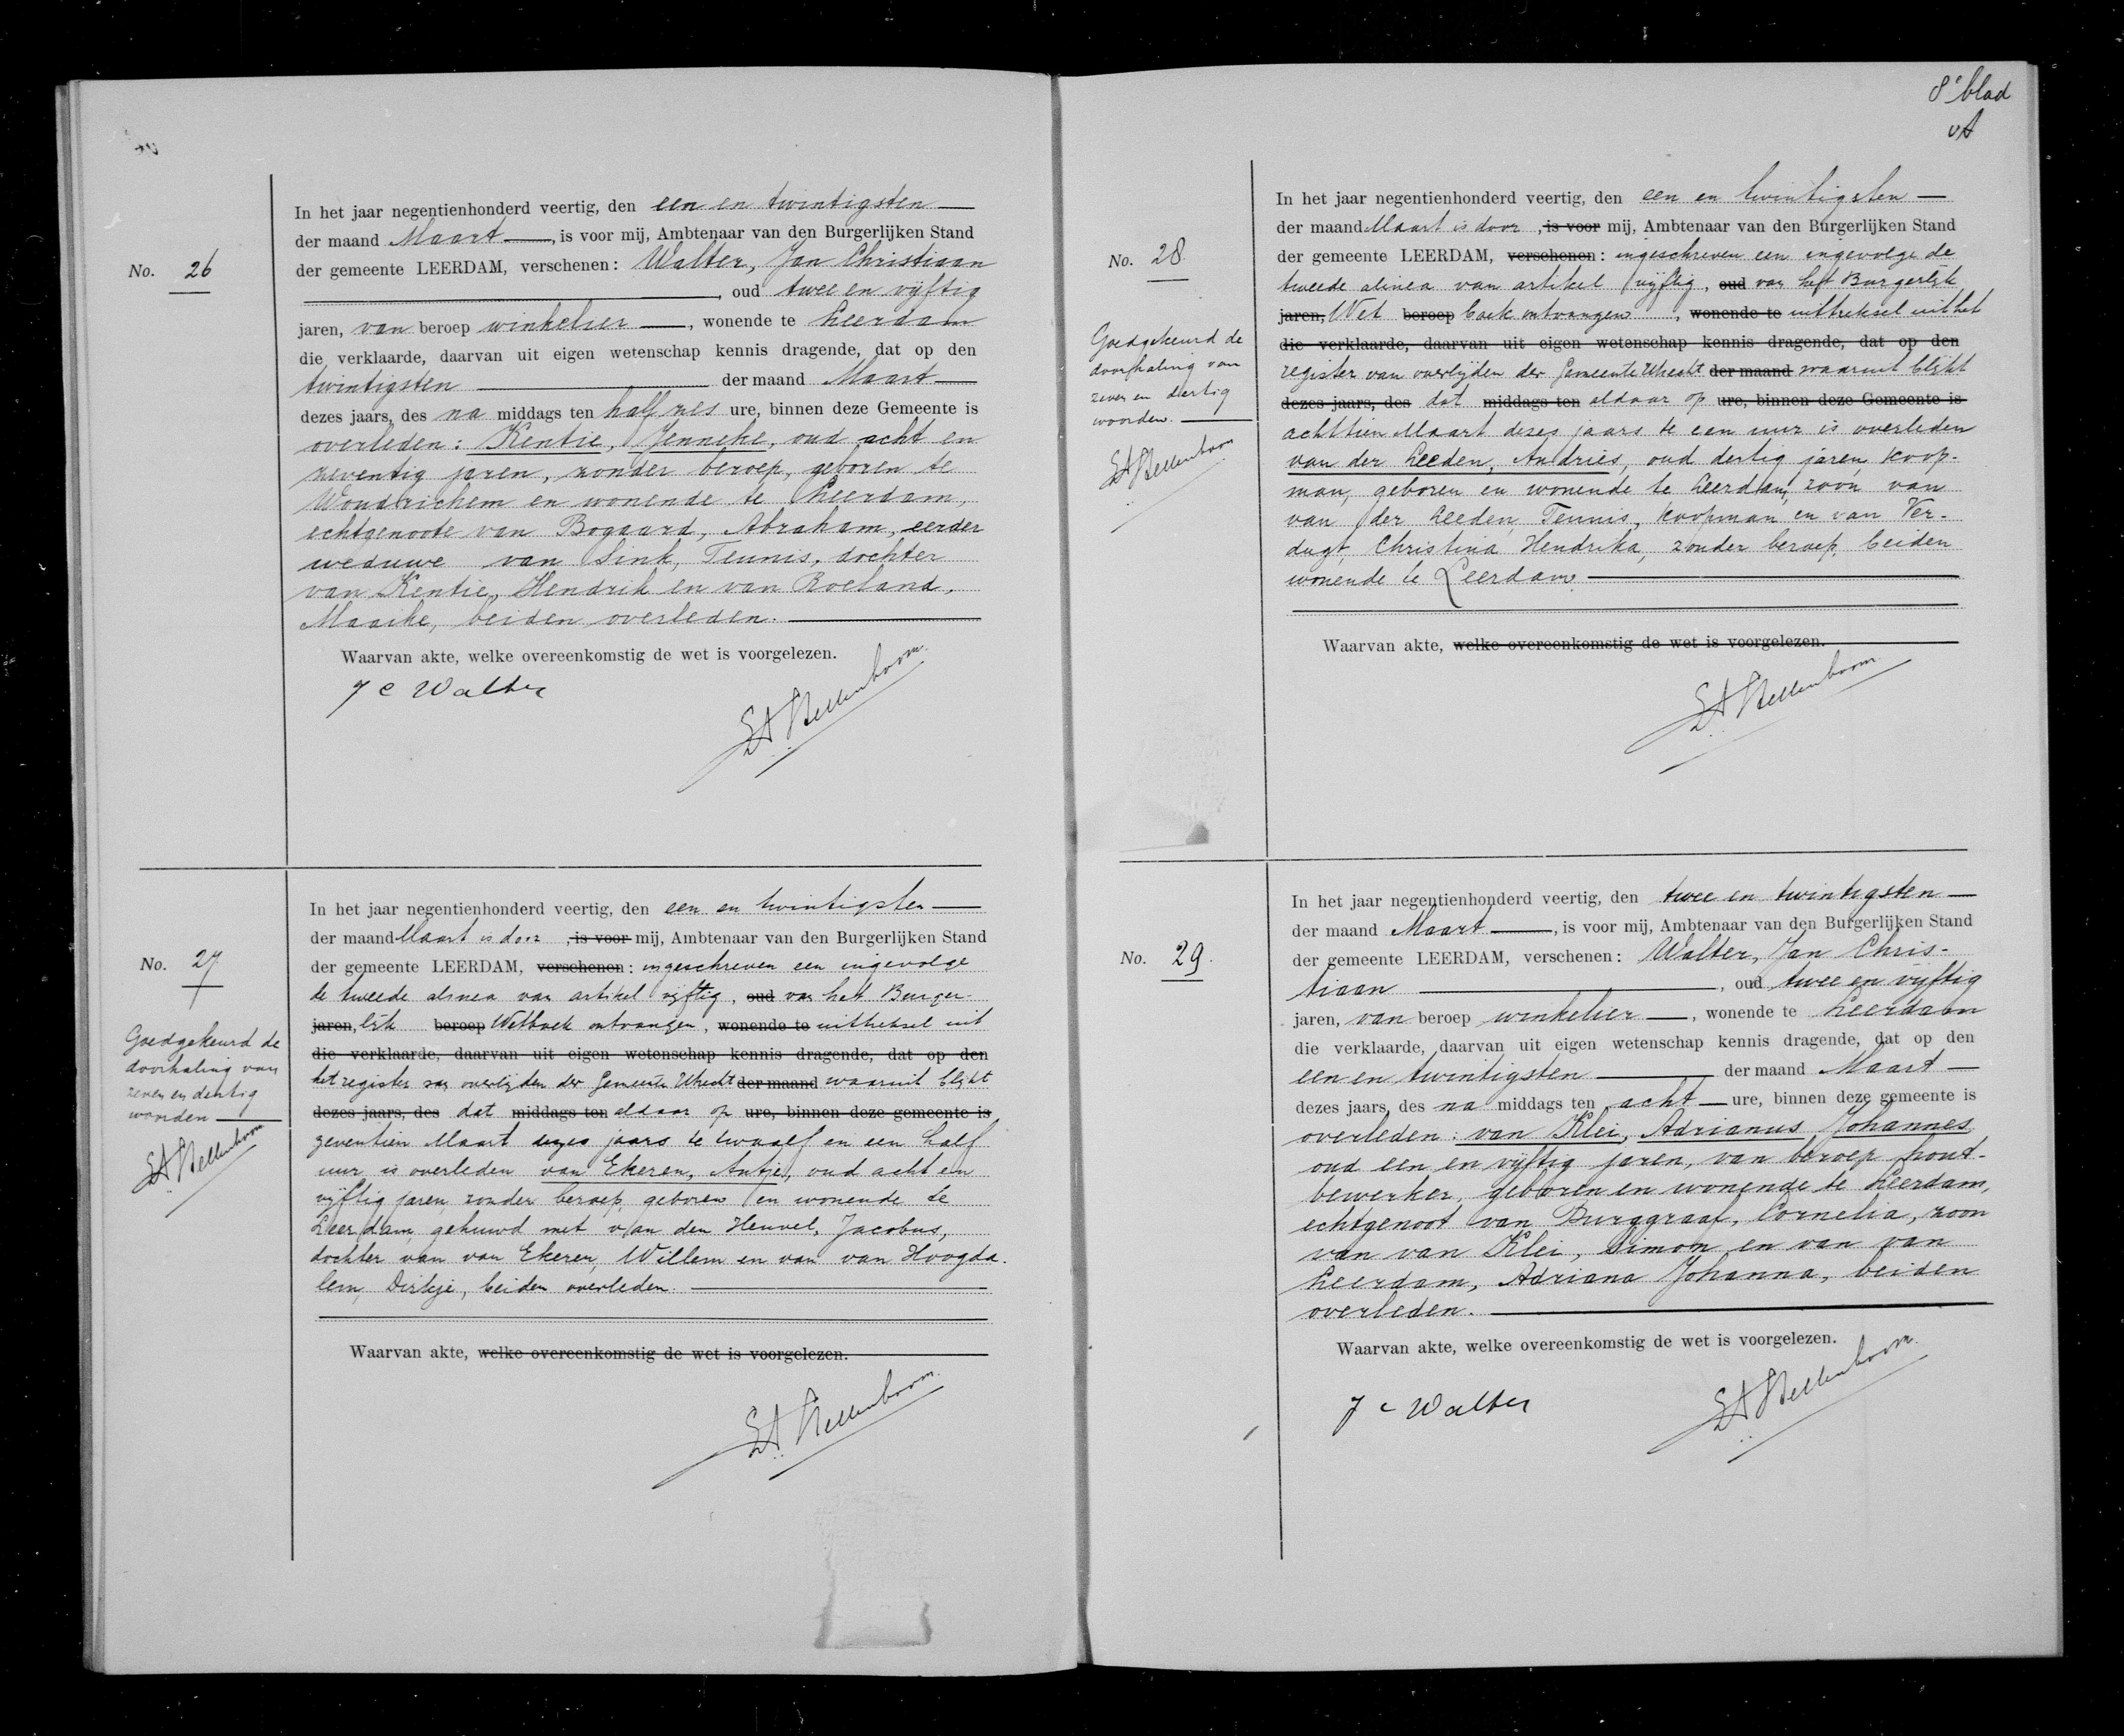 No. 26
In het jaar negentienhonderd veertig, den een en twintigsten
der maand Maart, is voor mij, Ambtenaar van den Burgerlijken Stand
der gemeente LEERDAM, verschenen: Walter, Jan Christiaan
, oud twee en vijftig
jaren, van beroep winkelier, wonende te Leerdam
die verklaarde, daarvan uit eigen wetenschap kennis dragende, dat op den
twintigsten der maand Maart
dezes jaars, des na middags ten half zes ure, binnen deze Gemeente is
overleden: Kentie, Jenneke, oud acht en
zeventig jaren, zonder beroep, geboren te
Woudrichem en wonende te Leerdam,
echtgenoote van Bogaard, Abraham, eerder
weduwe van Sink, Teunis, dochter
van Kentie, Hendrik en van Roeland,
Maaike, beiden overleden.
Waarvan akte, welke overeenkomstig de wet is voorgelezen.
J C Walter
No. 27
Goedgekeurd de
doorhaling van
zeven en dertig
woorden
In het jaar negentienhonderd veertig, den een en twintigsten
der maand Maart is door, is voor mij, Ambtenaar van den Burgerlijken Stand
der gemeente LEERDAM, verschenen: ingeschreven een ingevolge
de tweede alinea van artikel vijftig, oud van het Burger-
jaren, lijk beroep Wetboek ontvangen, wonende te uittreksel uit
die verklaarde, daarvan uit eigen wetenschap kennis dragende, dat op den
het register van overlijden der Gemeente Utrecht der maand waaruit blijkt
dezes jaars, des dat middags ten aldaar op ure, binnen deze gemeente is
zeventien Maart dezes jaars te twaalf en een half
uur is overleden van Ekeren, Antje, oud acht en
vijftig jaren, zonder beroep, geboren en wonende te
Leerdam, gehuwd met van den Heuvel, Jacobus,
dochter van van Ekeren, Willem en van van Hoogda-
lem, Dirkje, beiden overleden.
Waarvan akte, welke overeenkomstig de wet is voorgelezen.
8e blad
vA
No. 28
Goedgekeurd de
doorhaling van
zeven en dertig
woorden.
In het jaar negentienhonderd veertig, den een en twintigsten
der maand Maart is door, is voor mij, Ambtenaar van den Burgerlijken Stand
der gemeente LEERDAM, verschenen: ingeschreven een ingevolge de
tweede alinea van artikel vijftig, oud van het Burgerlijk
jaren, Wet beroep boek ontvangen, wonende te uittreksel uit het
die verklaarde, daarvan uit eigen wetenschap kennis dragende, dat op den
register van overlijden der Gemeente Utrecht der maand waaruit blijkt
dezes jaars, des dat middags ten aldaar op ure, binnen deze Gemeente is
achttien Maart dezes jaars te een uur is overleden
van der Leeden, Andries, oud dertig jaren, koop-
man, geboren en wonende te Leerdam, zoon van
van der Leeden, Teunis, koopman en van Ver-
dugt, Christina Hendrika, zonder beroep, beiden
wonende te Leerdam.
Waarvan akte, welke overeenkomstig de wet is voorgelezen.
No. 29.
In het jaar negentienhonderd veertig, den twee en twintigsten
der maand Maart, is voor mij, Ambtenaar van den Burgerlijken Stand
der gemeente LEERDAM, verschenen: Walter, Jan Chris-
tiaan, oud twee en vijftig
jaren, van beroep winkelier, wonende te Leerdam
die verklaarde, daarvan uit eigen wetenschap kennis dragende, dat op den
een en twintigsten der maand Maart
dezes jaars, des na middags ten acht ure, binnen deze gemeente is
overleden: van Klei, Adrianus Johannes
oud een en vijftig jaren, van beroep hout-
bewerker, geboren en wonende te Leerdam,
echtgenoot van Burggraaf, Cornelia, zoon
van van Klei, Simon en van van
Leerdam, Adriana Johanna, beiden
overleden.
Waarvan akte, welke overeenkomstig de wet is voorgelezen.
J C Walter